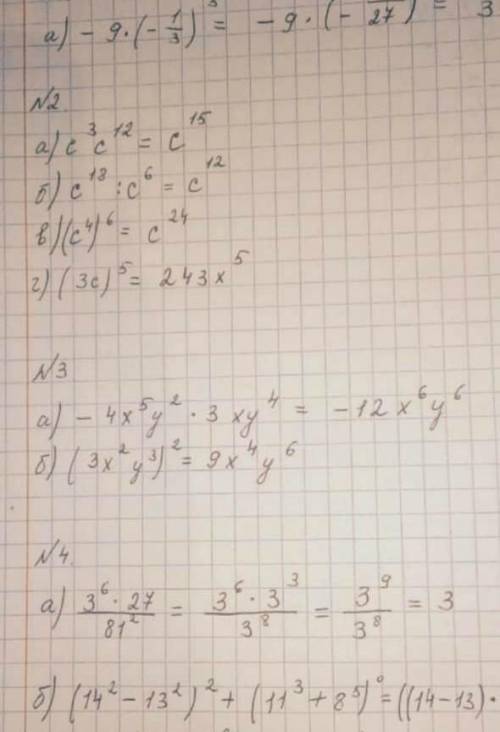 а) - 9 · (- 1/3)³ = - 9 · (- /27) = 3
№2
а) c³ c¹² = c¹⁵
б) c¹⁸ : c⁶ = c¹²
в) (c⁴)⁶ = c²⁴
г) (3c)⁵ = 243x⁵
№3
а) - 4x⁵y² · 3xy⁴ = -12x⁶y⁶
б) (3x²y³)² = 9x⁴y⁶
№4.
а) 3⁶ · 27 / 81² = 3⁶ · 3³ / 3⁸ = 3⁹ / 3⁸ = 3
б) (14² - 13²)² + (11³ + 8⁵)⁰ = ((14 - 13) ·